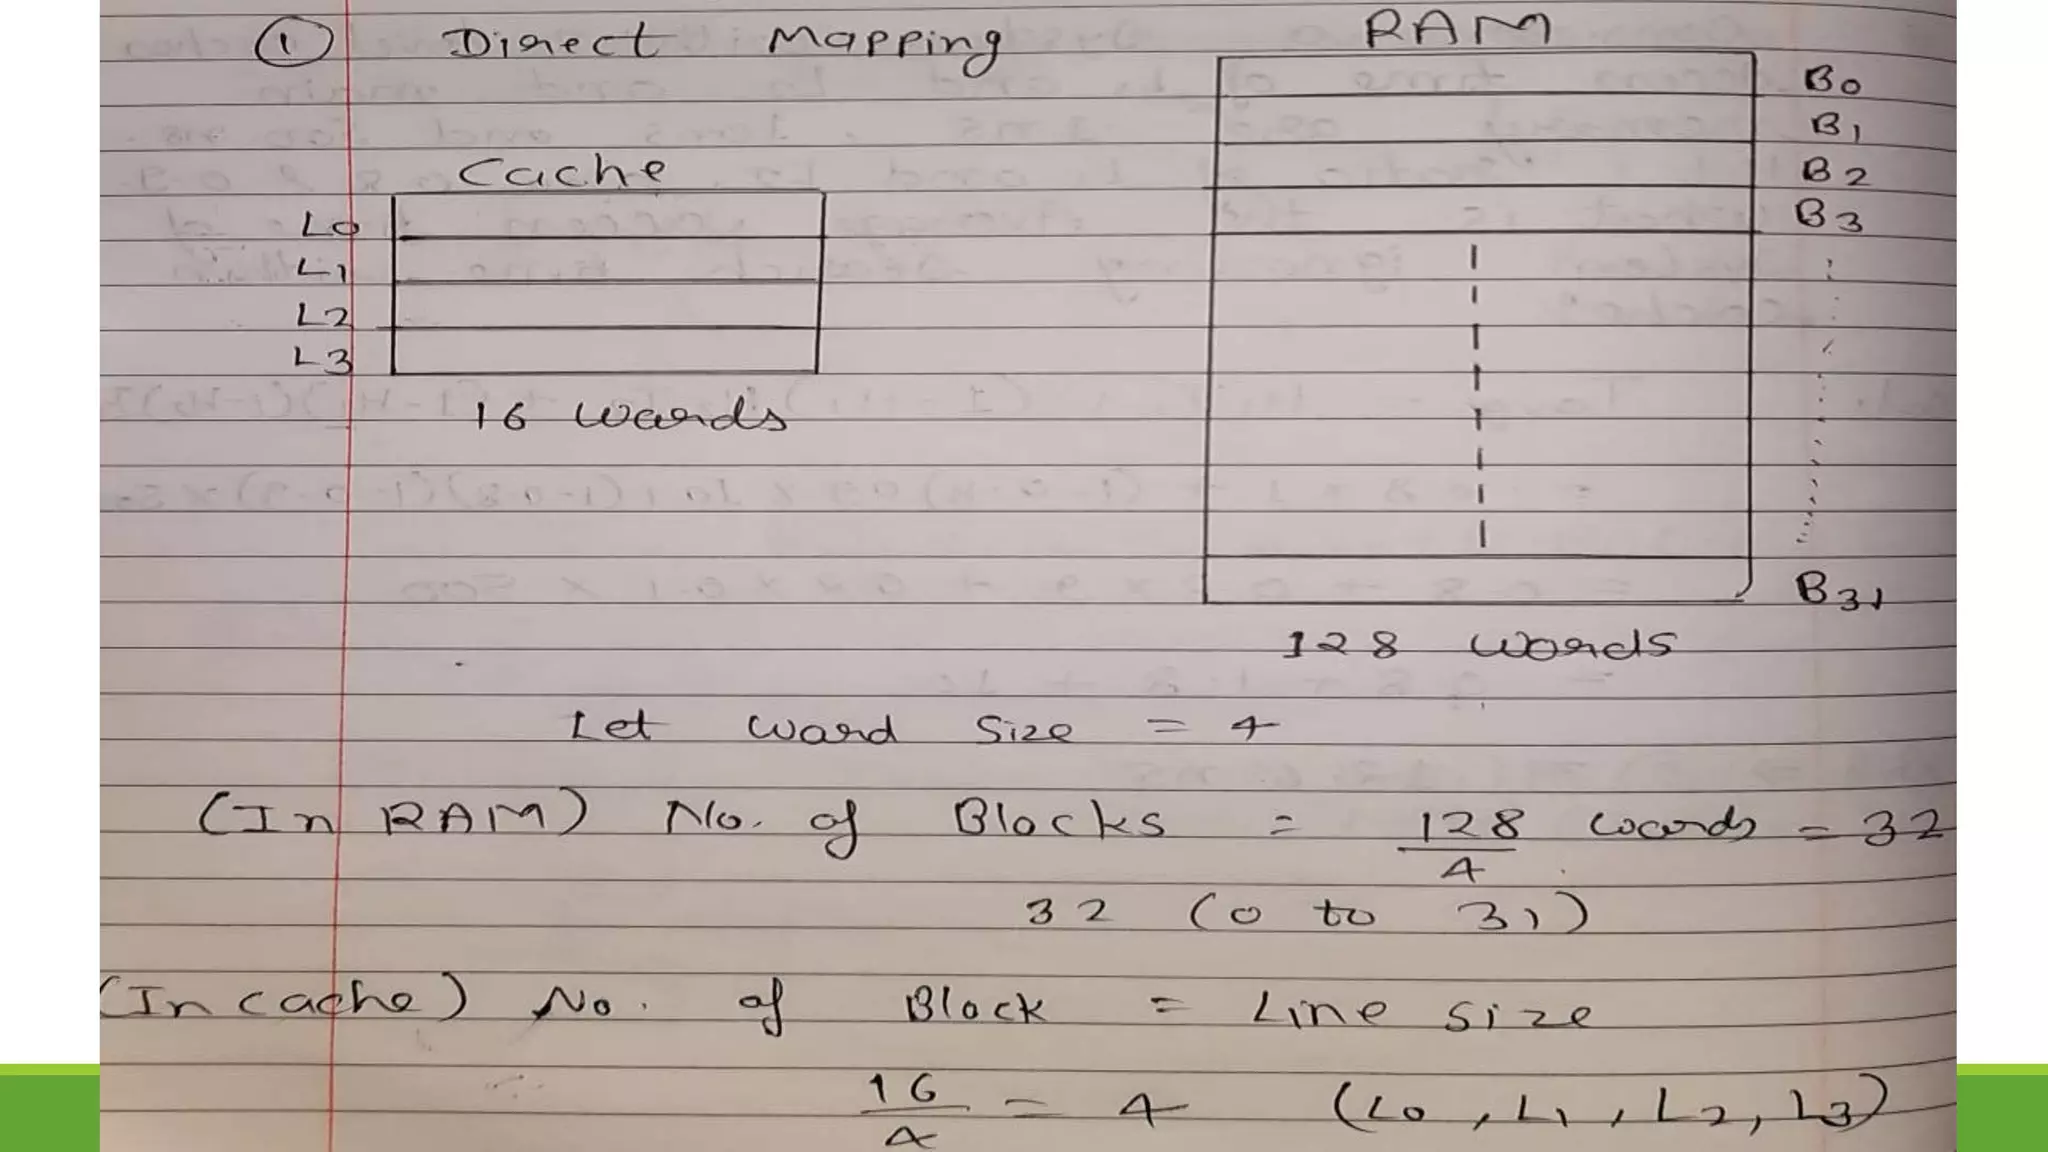 ① Direct Mapping
RAM
B0
B1
B2
B3
B31
128 words
Cache
L0
L1
L2
L3
16 words
Let word size = 4
(In RAM) No. of Blocks = 128/4 words = 32
32 (0 to 31)
(In cache) No. of Block = Line size
16/4 = 4 (L0, L1, L2, L3)